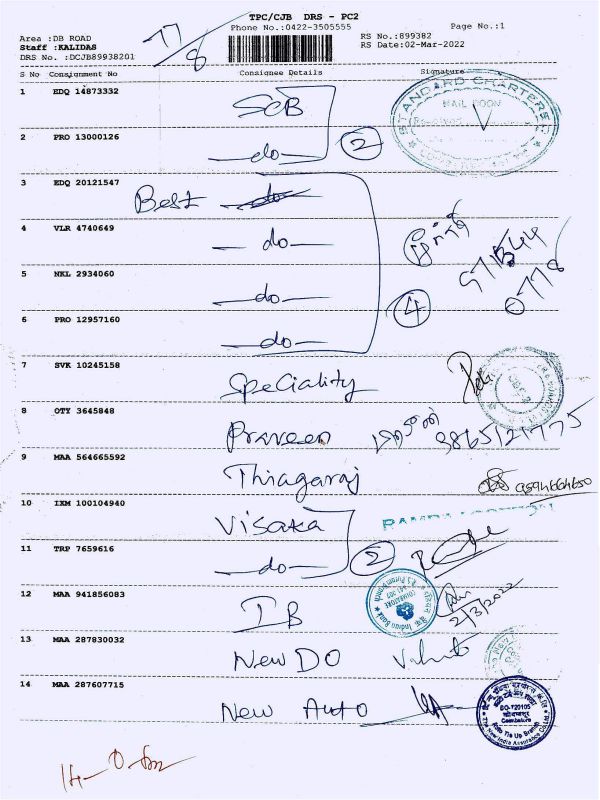 TPC/CJB DRS - PC2
Phone No.:0422-3505555 Page No.:1
Area :DB ROAD RS No.:899382
Staff :KALIDAS RS Date:02-Mar-2022
DRS No. :DCJB89938201
77/8
S No Consignment No Consignee Details Signature
1 EDQ 14873332 SCB
STANDARD CHARTERED
MAIL ROOM
2 PRO 13000126 —do— 2
3 EDQ 20121547 Best do
4 VLR 4740649 —do—
5 NKL 2934060 —do— 4
6 PRO 12957160 —do—
7 SVK 10245158 Speciality
8 OTY 3645848 Praveen
9 MAA 564665592 Thiagaraj
10 IXM 100104940 Visaka
11 TRP 7659616 —do— 2
12 MAA 941856083 IB
Indian Bank
COIMBATORE
2/3/2022
13 MAA 287830032 New DO
14 MAA 287607715 New Auto
BO-720105
Coimbatore
Auto Tie Up Branch
The New India Assurance Co. Ltd.